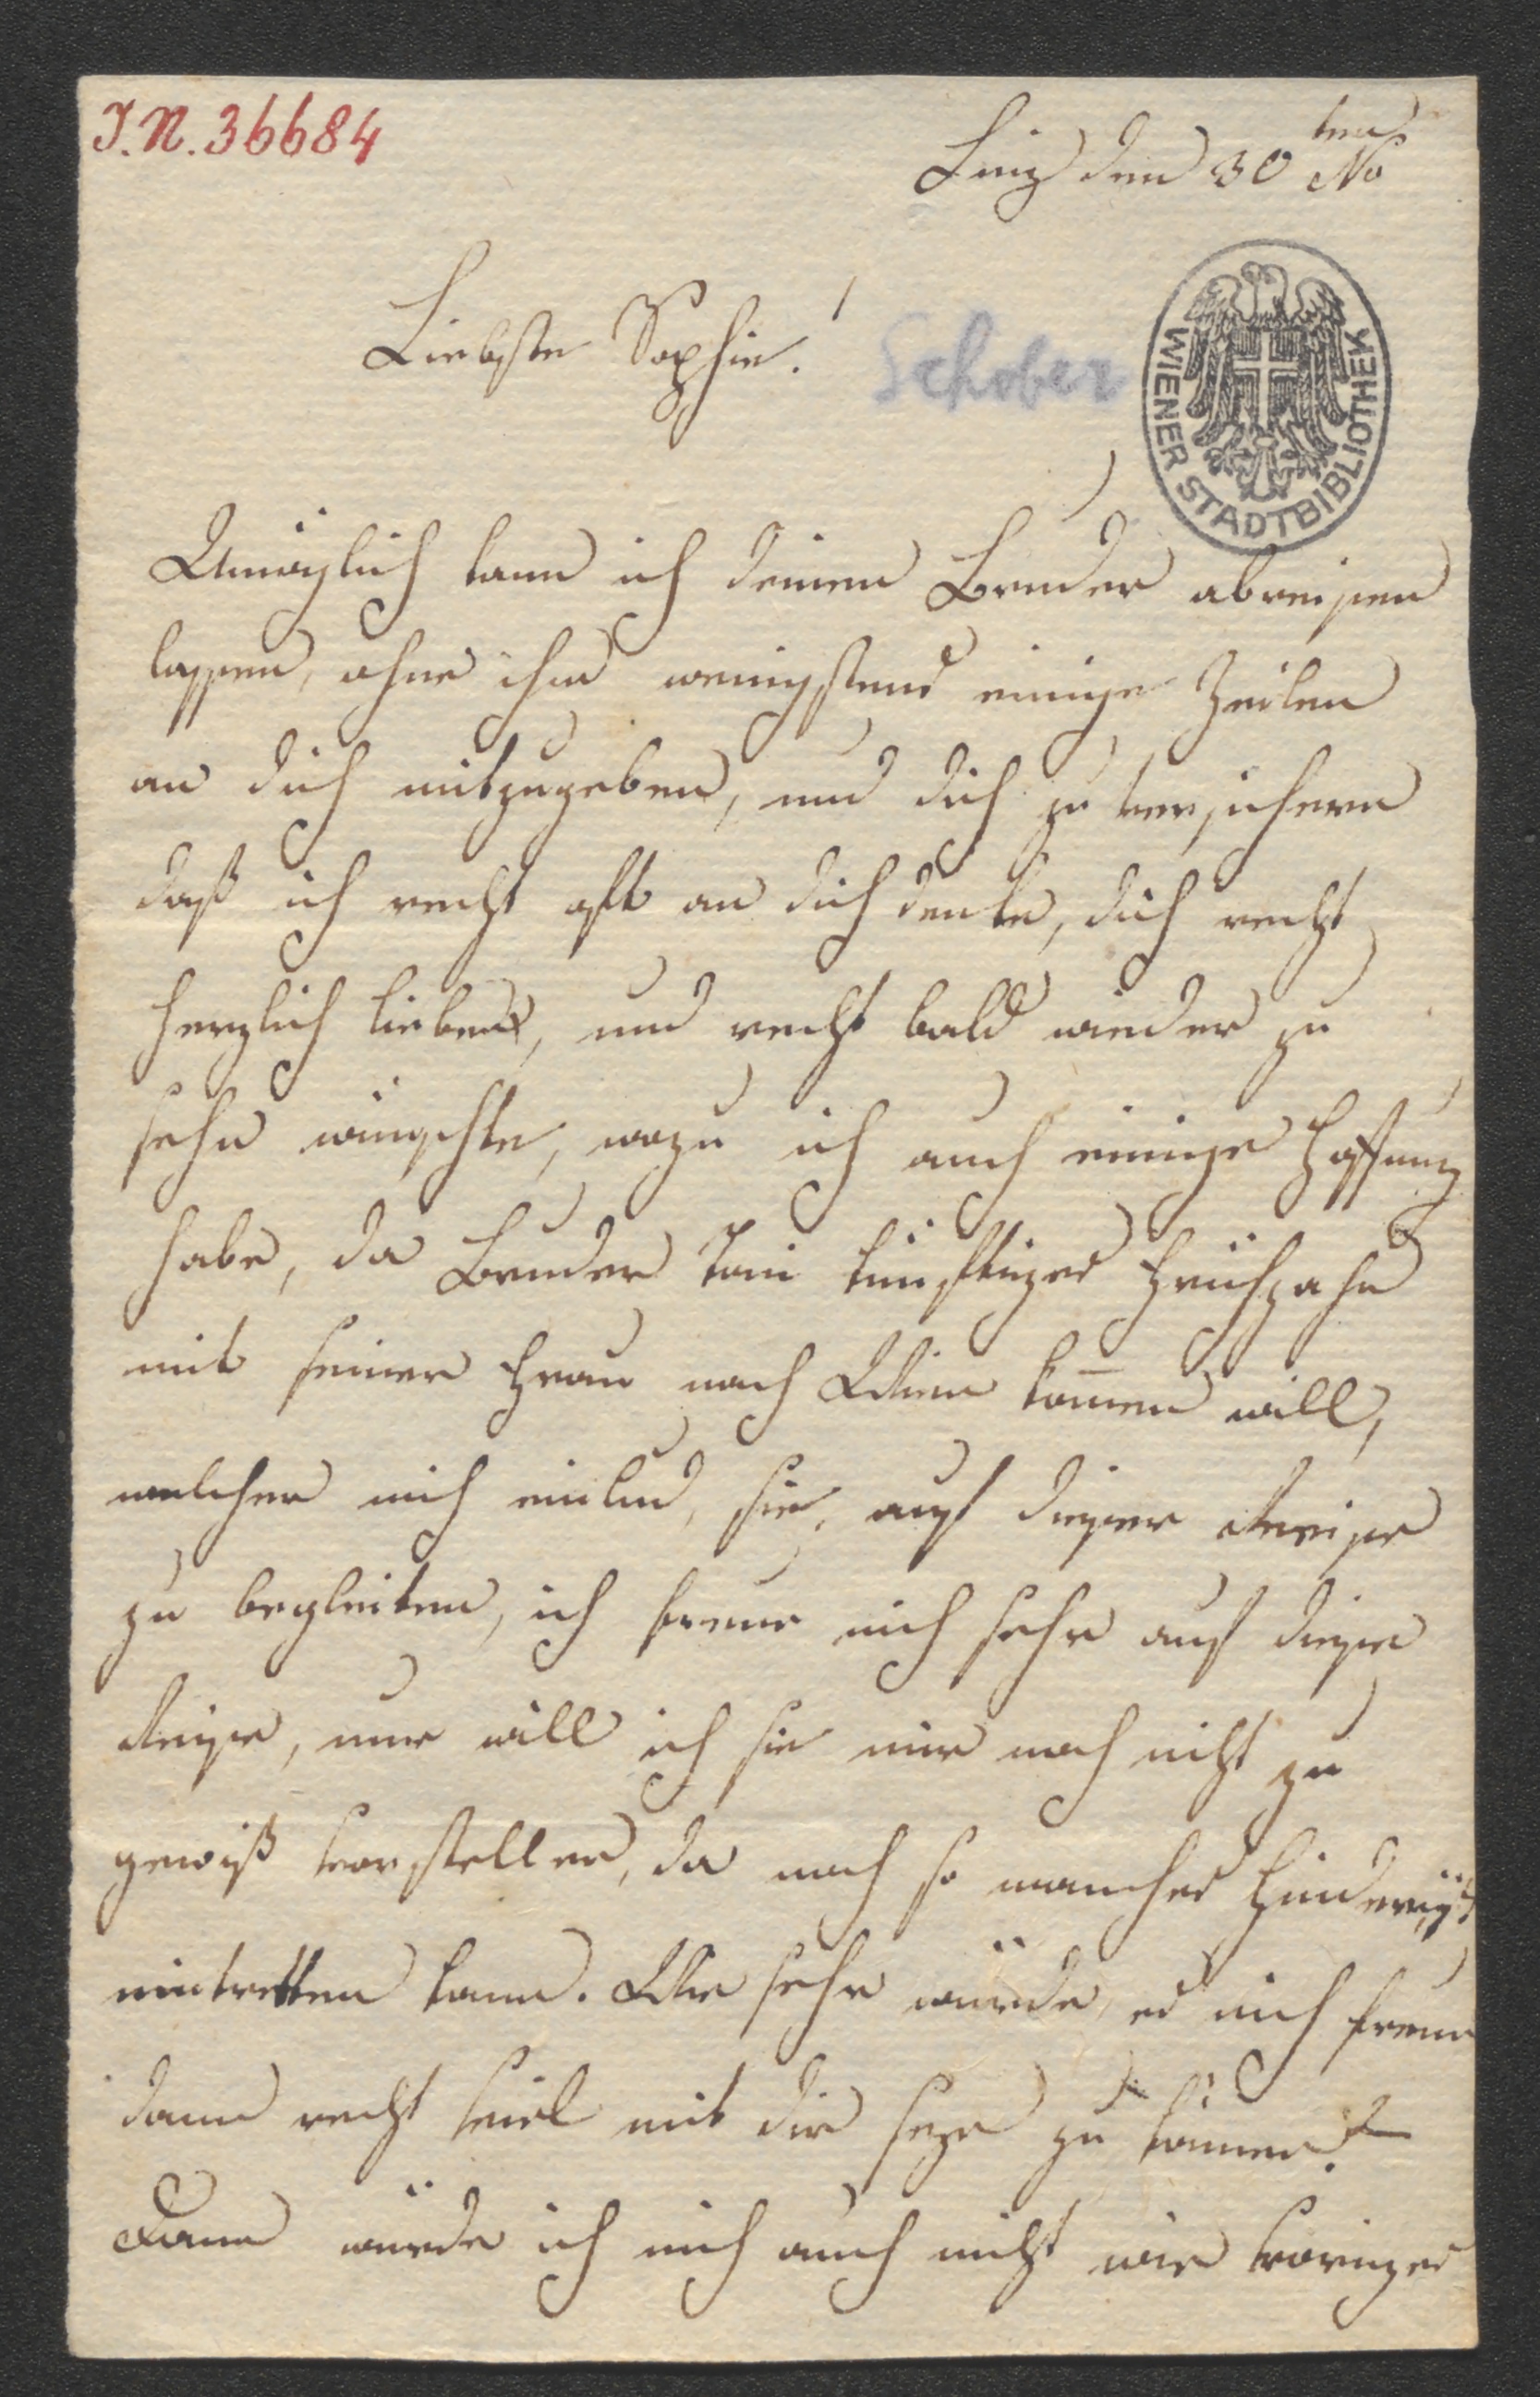 J. N. 36684
Linz den 30ten No
Liebste Sophie!
Schober
WIENER STADTBIBLIOTHEK
Unmöglich kann ich deinen Bruder abreisen
lassen, ohne ihm wenigstens einige Zeilen
an dich mitzugeben, und dich zu versichern
daß ich recht oft an dich denke, dich recht
herzlich liebe, und recht bald wieder zu
sehn wünschte, wozu ich auch einige Hoffnung
habe, da Bruder Toni künftiges Frühjahr
mit seiner Frau nach Wien kom̄en will,
welcher mich einlud, sie, auf dieser Reise
zu begleiten, ich freue mich sehr auf diese
Reise, nur will ich sie mir noch nicht zu
gewiß vorstellen, da noch so manches Hinderniß
eintretten kann. Wie sehr würde es mich freun
dann recht viel mit dir seyn zu können?
Dann würde ich mich auch nicht wie voriges